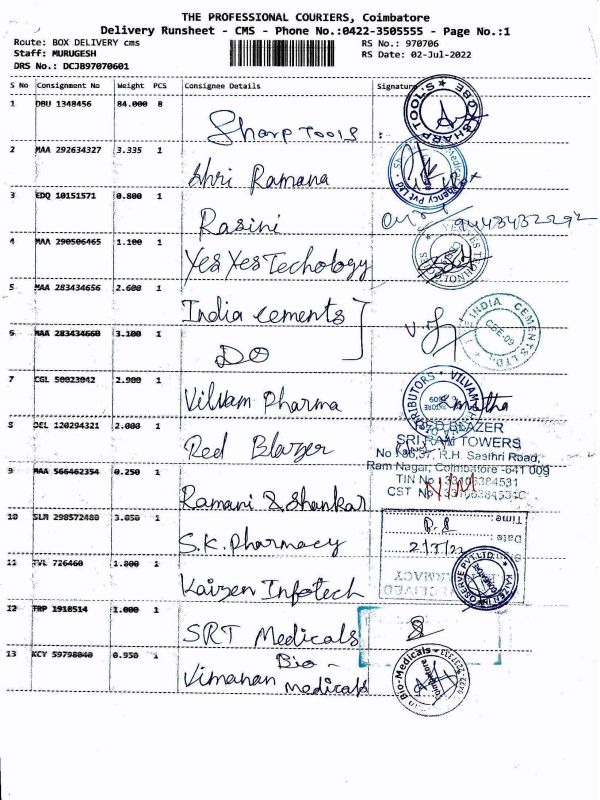 THE PROFESSIONAL COURIERS, Coimbatore
Delivery Runsheet - CMS - Phone No.:0422-3505555 - Page No.:1
Route: BOX DELIVERY cms RS No.: 970706
Staff: MURUGESH RS Date: 02-Jul-2022
DRS No.: DCJB97070601
S No Consignment No Weight PCS Consignee Details Signature
1 DBU 1348456 84.000 8 Sharp Tools
SHARP TOOL'S
2 MAA 292634327 3.335 1 Shri Ramana
3 EDQ 10151571 0.800 1 Rasini
4 MAA 290506465 1.100 1 Yes Yes Techology
5 MAA 283434656 2.600 1 India cements
THE INDIA CEMENTS LTD
6 MAA 283434660 3.100 1 DO
7 CGL 50023042 2.900 1 Vilvam Pharma
8 DEL 120294321 2.000 1 Red Blazer
RED BLAZER
SRI RAM TOWERS
R.H. Sasthri Road,
Ram Nagar, Coimbatore -641 009
TIN No
CST No
9 MAA 566462354 0.250 1 Ramani & Shankar
N/M
10 SLM 298572480 3.050 1 S.K. Pharmacy
Time:
Date: 2/7/22
11 TVL 726460 1.800 1 Kaizen Infotech
12 TRP 1918514 1.000 1 SRT Medicals
13 KCY 59798040 0.950 1 Vimanan Bio-medicals
Bio-Medicals
Coimbatore